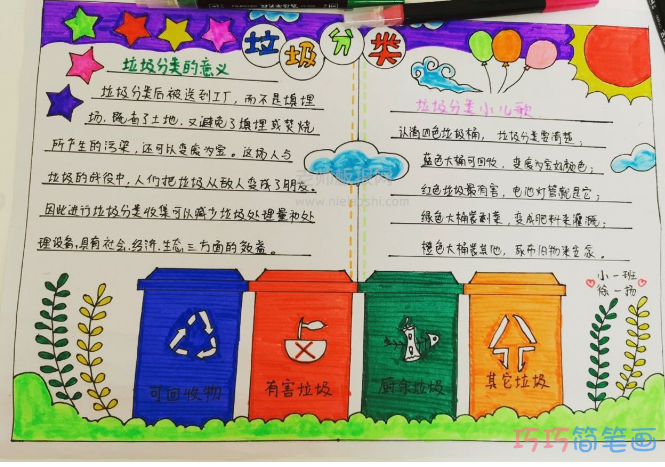 垃圾分类
垃圾分类的意义
垃圾分类后被送到工厂，而不是填埋
场，既省了土地，又避免了填埋或焚烧
所产生的污染，还可以变废为宝。这场人与
垃圾的战役中，人们把垃圾从敌人变成了朋友。
因此进行垃圾分类收集可以减少垃圾处理量和处
理设备，具有社会、经济、生态三方面的效益。
垃圾分类小儿歌
认清四色垃圾桶，垃圾分类要清楚；
蓝色大桶可回收，变废为宝
红色垃圾最有害，电池灯管就是它；
绿色大桶装剩菜，变成肥料来灌溉；
橙色大桶装其他，尿布旧物来安家。
小一班
徐一扬
可回收物
有害垃圾
厨余垃圾
其它垃圾
老师板报网
www.nielaoshi.com
巧巧简笔画